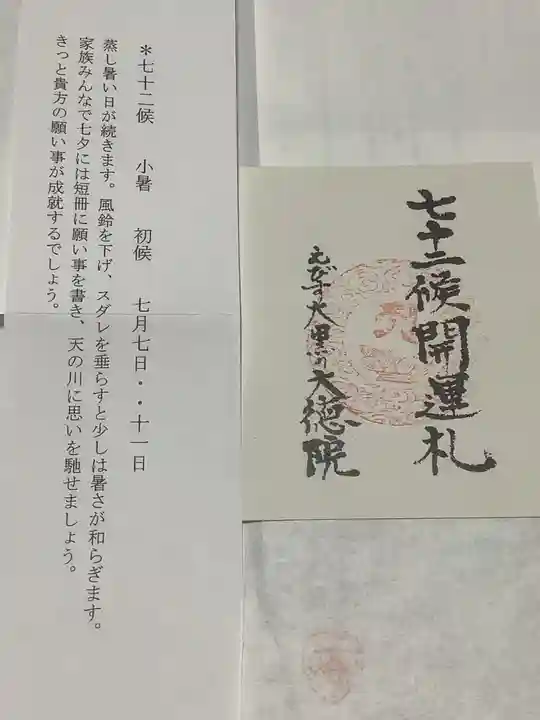 七十二候開運札
えびす大黒の大徳院
＊七十二候　小暑　初候　七月七日・・十一日
蒸し暑い日が続きます。風鈴を下げ、スダレを垂らすと少しは暑さが和らぎます。
家族みんなで七夕には短冊に願い事を書き、天の川に思いを馳せましょう。
きっと貴方の願い事が成就するでしょう。